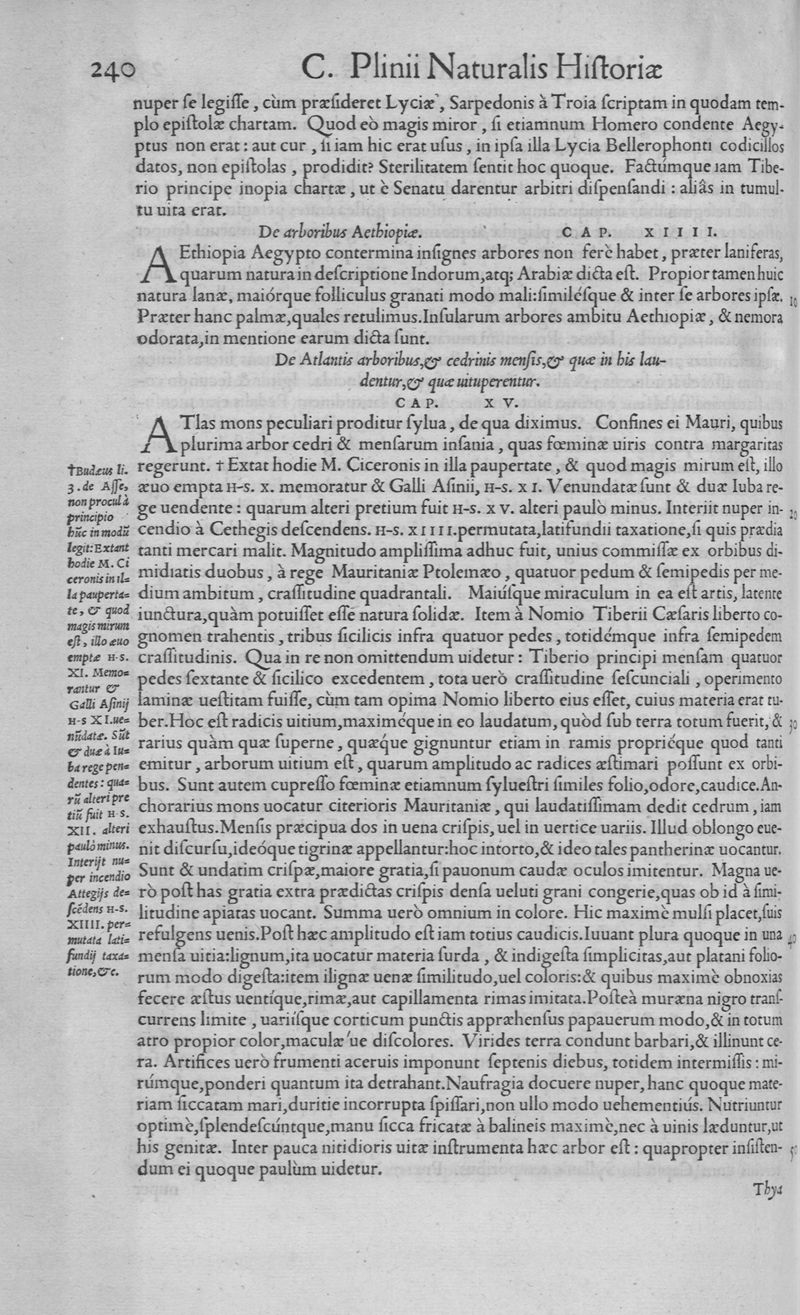 240 C. Plinii Naturalis Hiſtoriæ
nuper ſe legiſſe, cùm præſideret Lyciæ, Sarpedonis à Troia ſcriptam in quodam tem-
plo epiſtolæ chartam. Quod eò magis miror, ſi etiamnum Homero condente Aegy-
ptus non erat: aut cur, ſi iam hic erat uſus, in ipſa illa Lycia Bellerophonti codicillos
datos, non epiſtolas, prodidit? Sterilitatem ſentit hoc quoque. Factúmque iam Tibe-
rio principe inopia chartæ, ut è Senatu darentur arbitri diſpenſandi: aliâs in tumul-
tu uita erat.
De arboribus Aethiopiæ. CAP. XIIII.
AEthiopia Aegypto contermina inſignes arbores non ferè habet, præter laniferas,
quarum natura in deſcriptione Indorum, atq; Arabiæ dicta eſt. Propior tamen huic
natura lanæ, maiórque folliculus granati modo mali: ſimiléſque & inter ſe arbores ipſæ. 10
Præter hanc palmæ, quales retulimus. Inſularum arbores ambitu Aethiopiæ, & nemora
odorata, in mentione earum dicta ſunt.
De Atlantis arboribus, & cedrinis menſis, & quæ in his lau-
dentur, & quæ uituperentur.
CAP. XV.
ATlas mons peculiari proditur ſylua, de qua diximus. Confines ei Mauri, quibus
plurima arbor cedri & menſarum inſania, quas fœminæ uiris contra margaritas
regerunt. † Extat hodie M. Ciceronis in illa paupertate, & quod magis mirum eſt, illo
æuo empta H-S. X. memoratur & Galli Aſinii, H-S. XI. Venundatæ ſunt & duæ Iuba re-
ge uendente: quarum alteri pretium fuit H-S. XV. alteri paulò minus. Interiit nuper in- 20
cendio à Cethegis deſcendens. H-S. XIIII. permutata, latifundii taxatione, ſi quis prædia
tanti mercari malit. Magnitudo ampliſſima adhuc fuit, unius commiſſæ ex orbibus di-
midiatis duobus, à rege Mauritaniæ Ptolemæo, quatuor pedum & ſemipedis per me-
dium ambitum, craſſitudine quadrantali. Maiúſque miraculum in ea eſt artis, latente
iunctura, quàm potuiſſet eſſe natura ſolidæ. Item à Nomio Tiberii Cæſaris liberto co-
gnomen trahentis, tribus ſicilicis infra quatuor pedes, totidémque infra ſemipedem
craſſitudinis. Qua in re non omittendum uidetur: Tiberio principi menſam quatuor
pedes ſextante & ſicilico excedentem, tota uerò craſſitudine ſeſcunciali, operimento
laminæ ueſtitam fuiſſe, cùm tam opima Nomio liberto eius eſſet, cuius materia erat tu-
ber. Hoc eſt radicis uitium, maximéque in eo laudatum, quòd ſub terra totum fuerit, & 30
rarius quàm quæ ſuperne, quæque gignuntur etiam in ramis propriéque quod tanti
emitur, arborum uitium eſt, quarum amplitudo ac radices æſtimari poſſunt ex orbi-
bus. Sunt autem cupreſſo fœminæ etiamnum ſylueſtri ſimiles folio, odore, caudice. An-
chorarius mons uocatur citerioris Mauritaniæ, qui laudatiſſimam dedit cedrum, iam
exhauſtus. Menſis præcipua dos in uena criſpis, uel in uertice uariis. Illud oblongo eue-
nit diſcurſu, ideóque tigrinæ appellantur: hoc intorto, & ideo tales pantherinæ uocantur.
Sunt & undatim criſpæ, maiore gratia, ſi pauonum caudæ oculos imitentur. Magna ue-
rò poſt has gratia extra prædictas criſpis denſa ueluti grani congerie, quas ob id à ſimi-
litudine apiatas uocant. Summa uerò omnium in colore. Hic maximè mulſi placet, ſuis
refulgens uenis. Poſt hæc amplitudo eſt iam totius caudicis. Iuuant plura quoque in una 40
menſa uitia: lignum, ita uocatur materia ſurda, & indigeſta ſimplicitas, aut platani folio-
rum modo digeſta: item ilignæ uenæ ſimilitudo, uel coloris: & quibus maximè obnoxias
fecere æſtus uentíque, rimæ, aut capillamenta rimas imitata. Poſteà muræna nigro tranſ-
currens limite, uariíſque corticum punctis appræhenſus papauerum modo, & in totum
atro propior color, maculæ'ue diſcolores. Virides terra condunt barbari, & illinunt ce-
ra. Artifices uerò frumenti aceruis imponunt ſeptenis diebus, totidem intermiſſis: mi-
rúmque, ponderi quantum ita detrahant. Naufragia docuere nuper, hanc quoque mate-
riam ſiccatam mari, duritie incorrupta ſpiſſari, non ullo modo uehementiùs. Nutriuntur
optimè, ſplendeſcúntque, manu ſicca fricatæ à balineis maximè, nec à uinis læduntur, ut
his genitæ. Inter pauca nitidioris uitæ inſtrumenta hæc arbor eſt: quapropter inſiſten-
dum ei quoque paulùm uidetur.
Thya
†Budæus li.
3. de Aſſe,
non procul à
principio
hũc in modũ
legit: Extant
hodie M. Ci
ceronis in il=
la pauperta=
te, & quod
magis mirum
eſt, illo æuo
emptæ H-S.
XI. Memo=
rantur &
Galli Aſinij
H-S XI. ue=
nũdatæ. Sũt
& duæ à Iu=
ba rege pen=
dentes: qua=
rũ alteri pre
tiũ fuit H-S.
XII. alteri
paulò minus.
Interijt nu=
per incendio
Attegijs de=
ſcẽdens H-S.
XIIII. per=
mutata lati=
fundij taxa=
tione, &c.